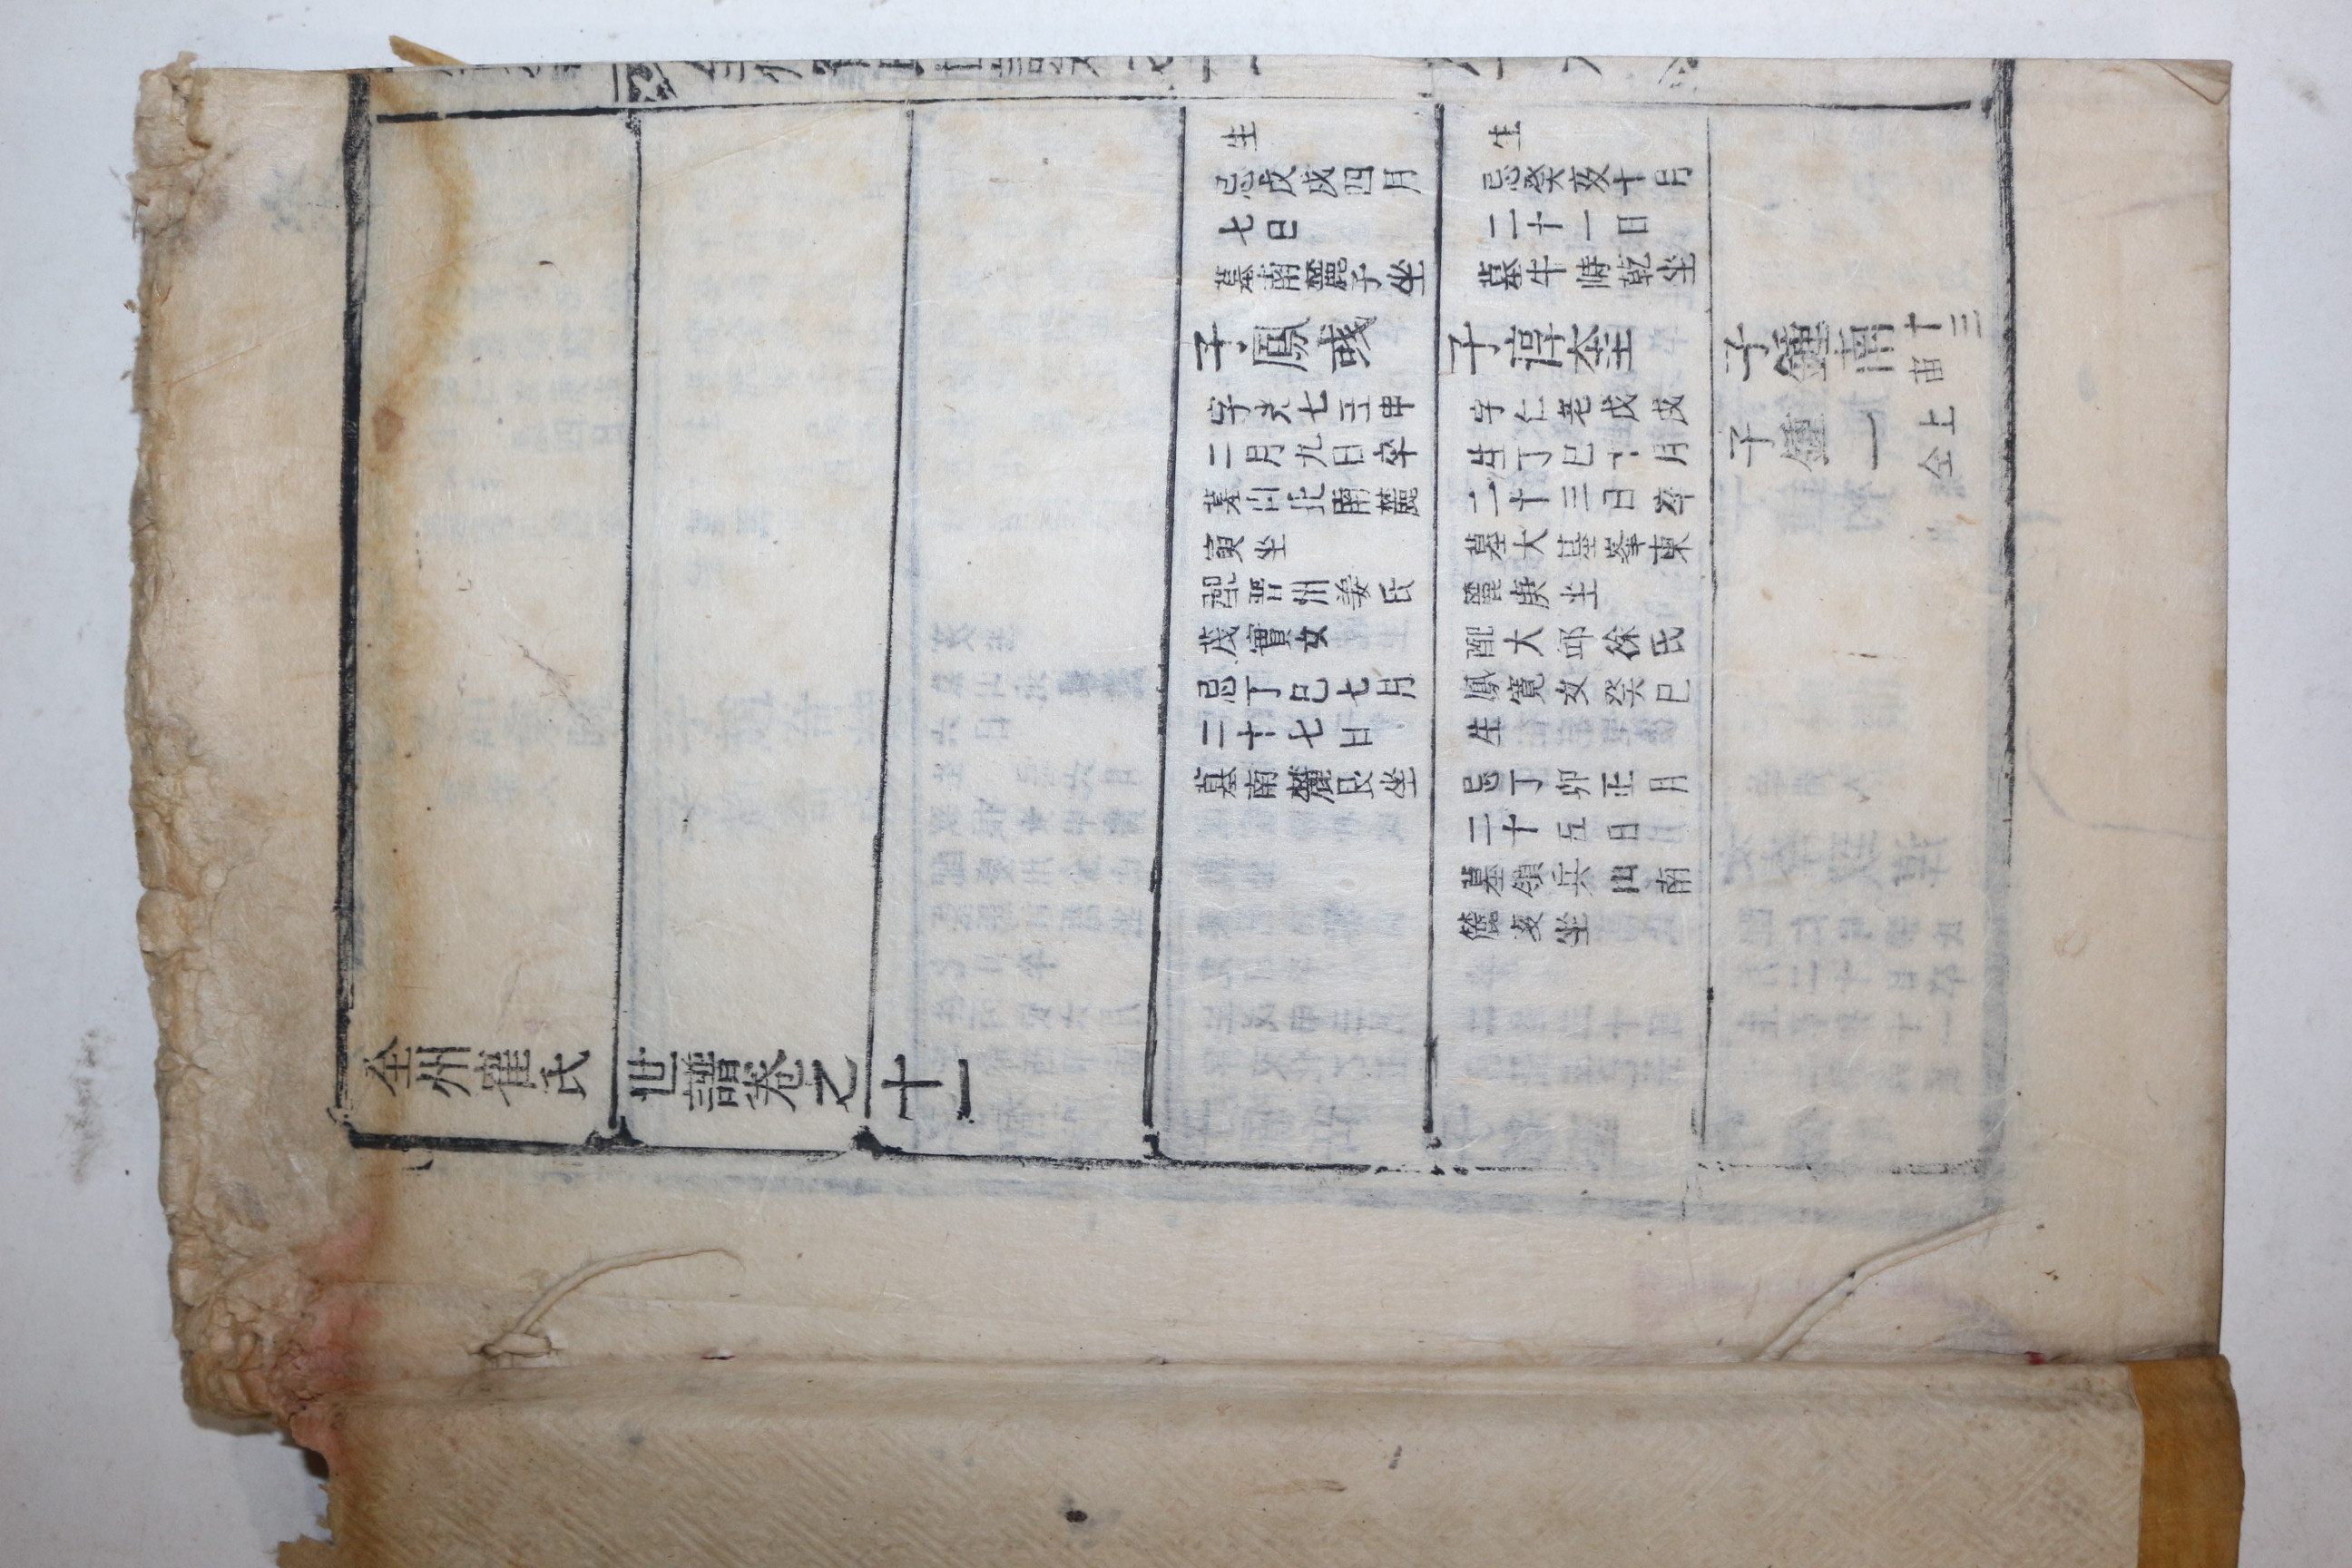 生
忌戊戌四月
七日
墓南麓子坐
子鳳彧
字克七壬申
二月九日卒
墓山北南麓
寅坐
配晋州姜氏
茂實女
忌丁巳七月
二十七日
墓南麓艮坐
生
忌癸亥十月
二十一日
墓牛峙乾坐
子淳奎
字仁老戊戌
生丁巳十月
二十三日卒
墓大基峯東
麓庚坐
配大邱徐氏
鳳寬女癸巳
生
忌丁卯正月
二十五日
墓領兵山南
麓亥坐
子鍾南 十三
宙
子鍾一 上
仝
全州崔氏世譜卷之十一